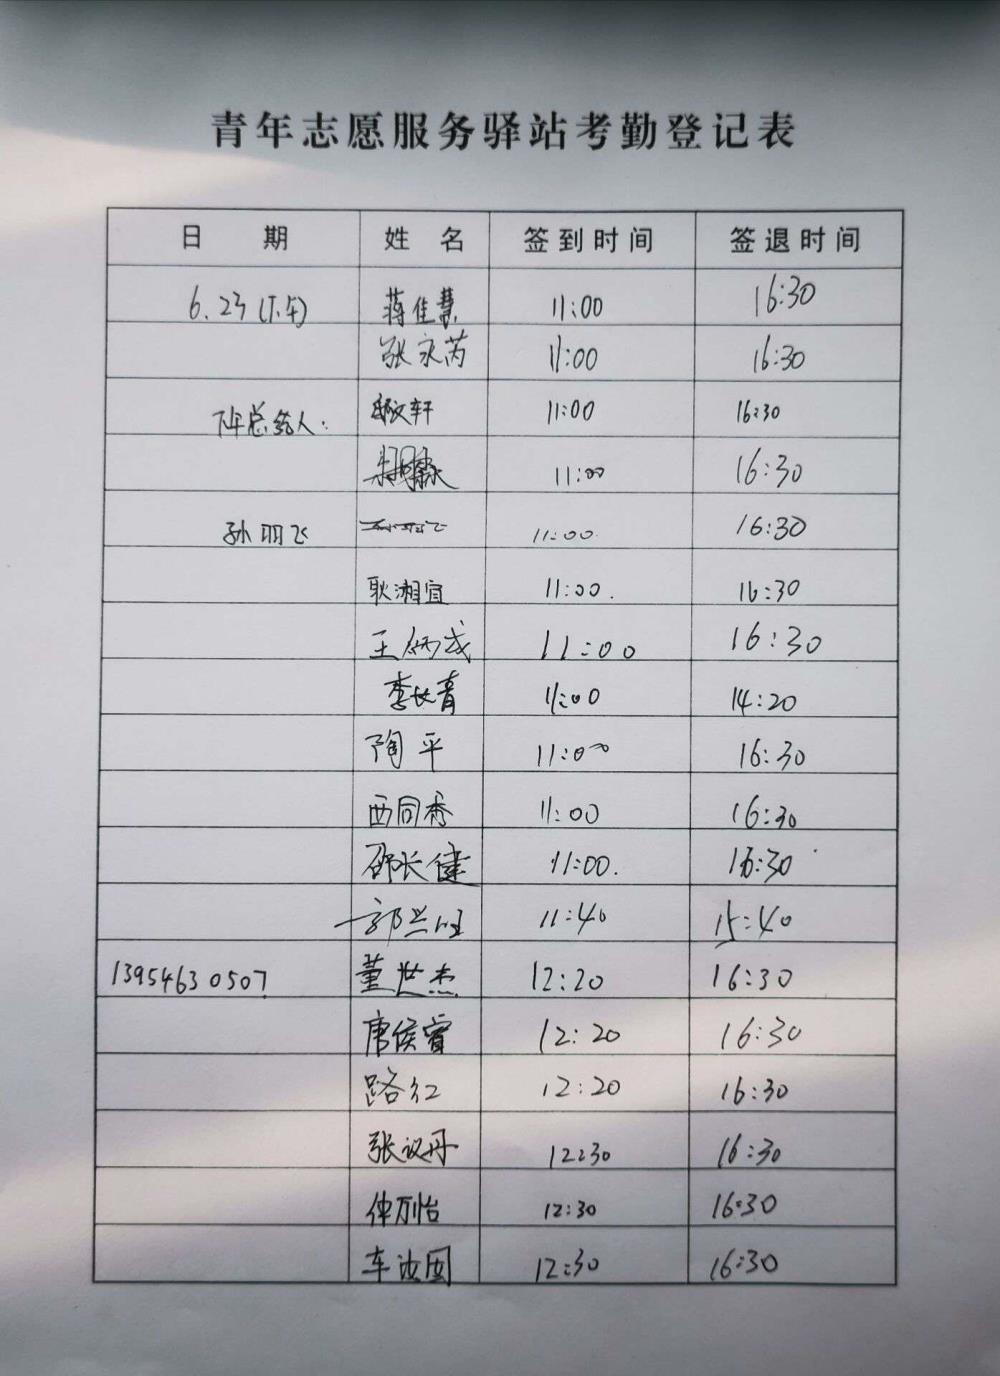 青年志愿服务驿站考勤登记表
日 期 姓 名 签到时间 签退时间
6.23(下午) 蒋佳慧 11:00 16:30
张永芮 11:00 16:30
下午总结人: 文轩 11:00 16:30
11:00 16:30
孙羽飞 11:00 16:30
耿湘宜 11:00. 16:30
王炳成 11:00 16:30
李长青 11:00 14:20
陶平 11:00 16:30
西同秀 11:00 16:30
邵长健 11:00. 16:30
郭兰 11:40 15:40
13954630507 董世杰 12:20 16:30
唐侯睿 12:20 16:30
路红 12:20 16:30
张议丹 12:30 16:30
仲怡 12:30 16:30
车汝国 12:30 16:30